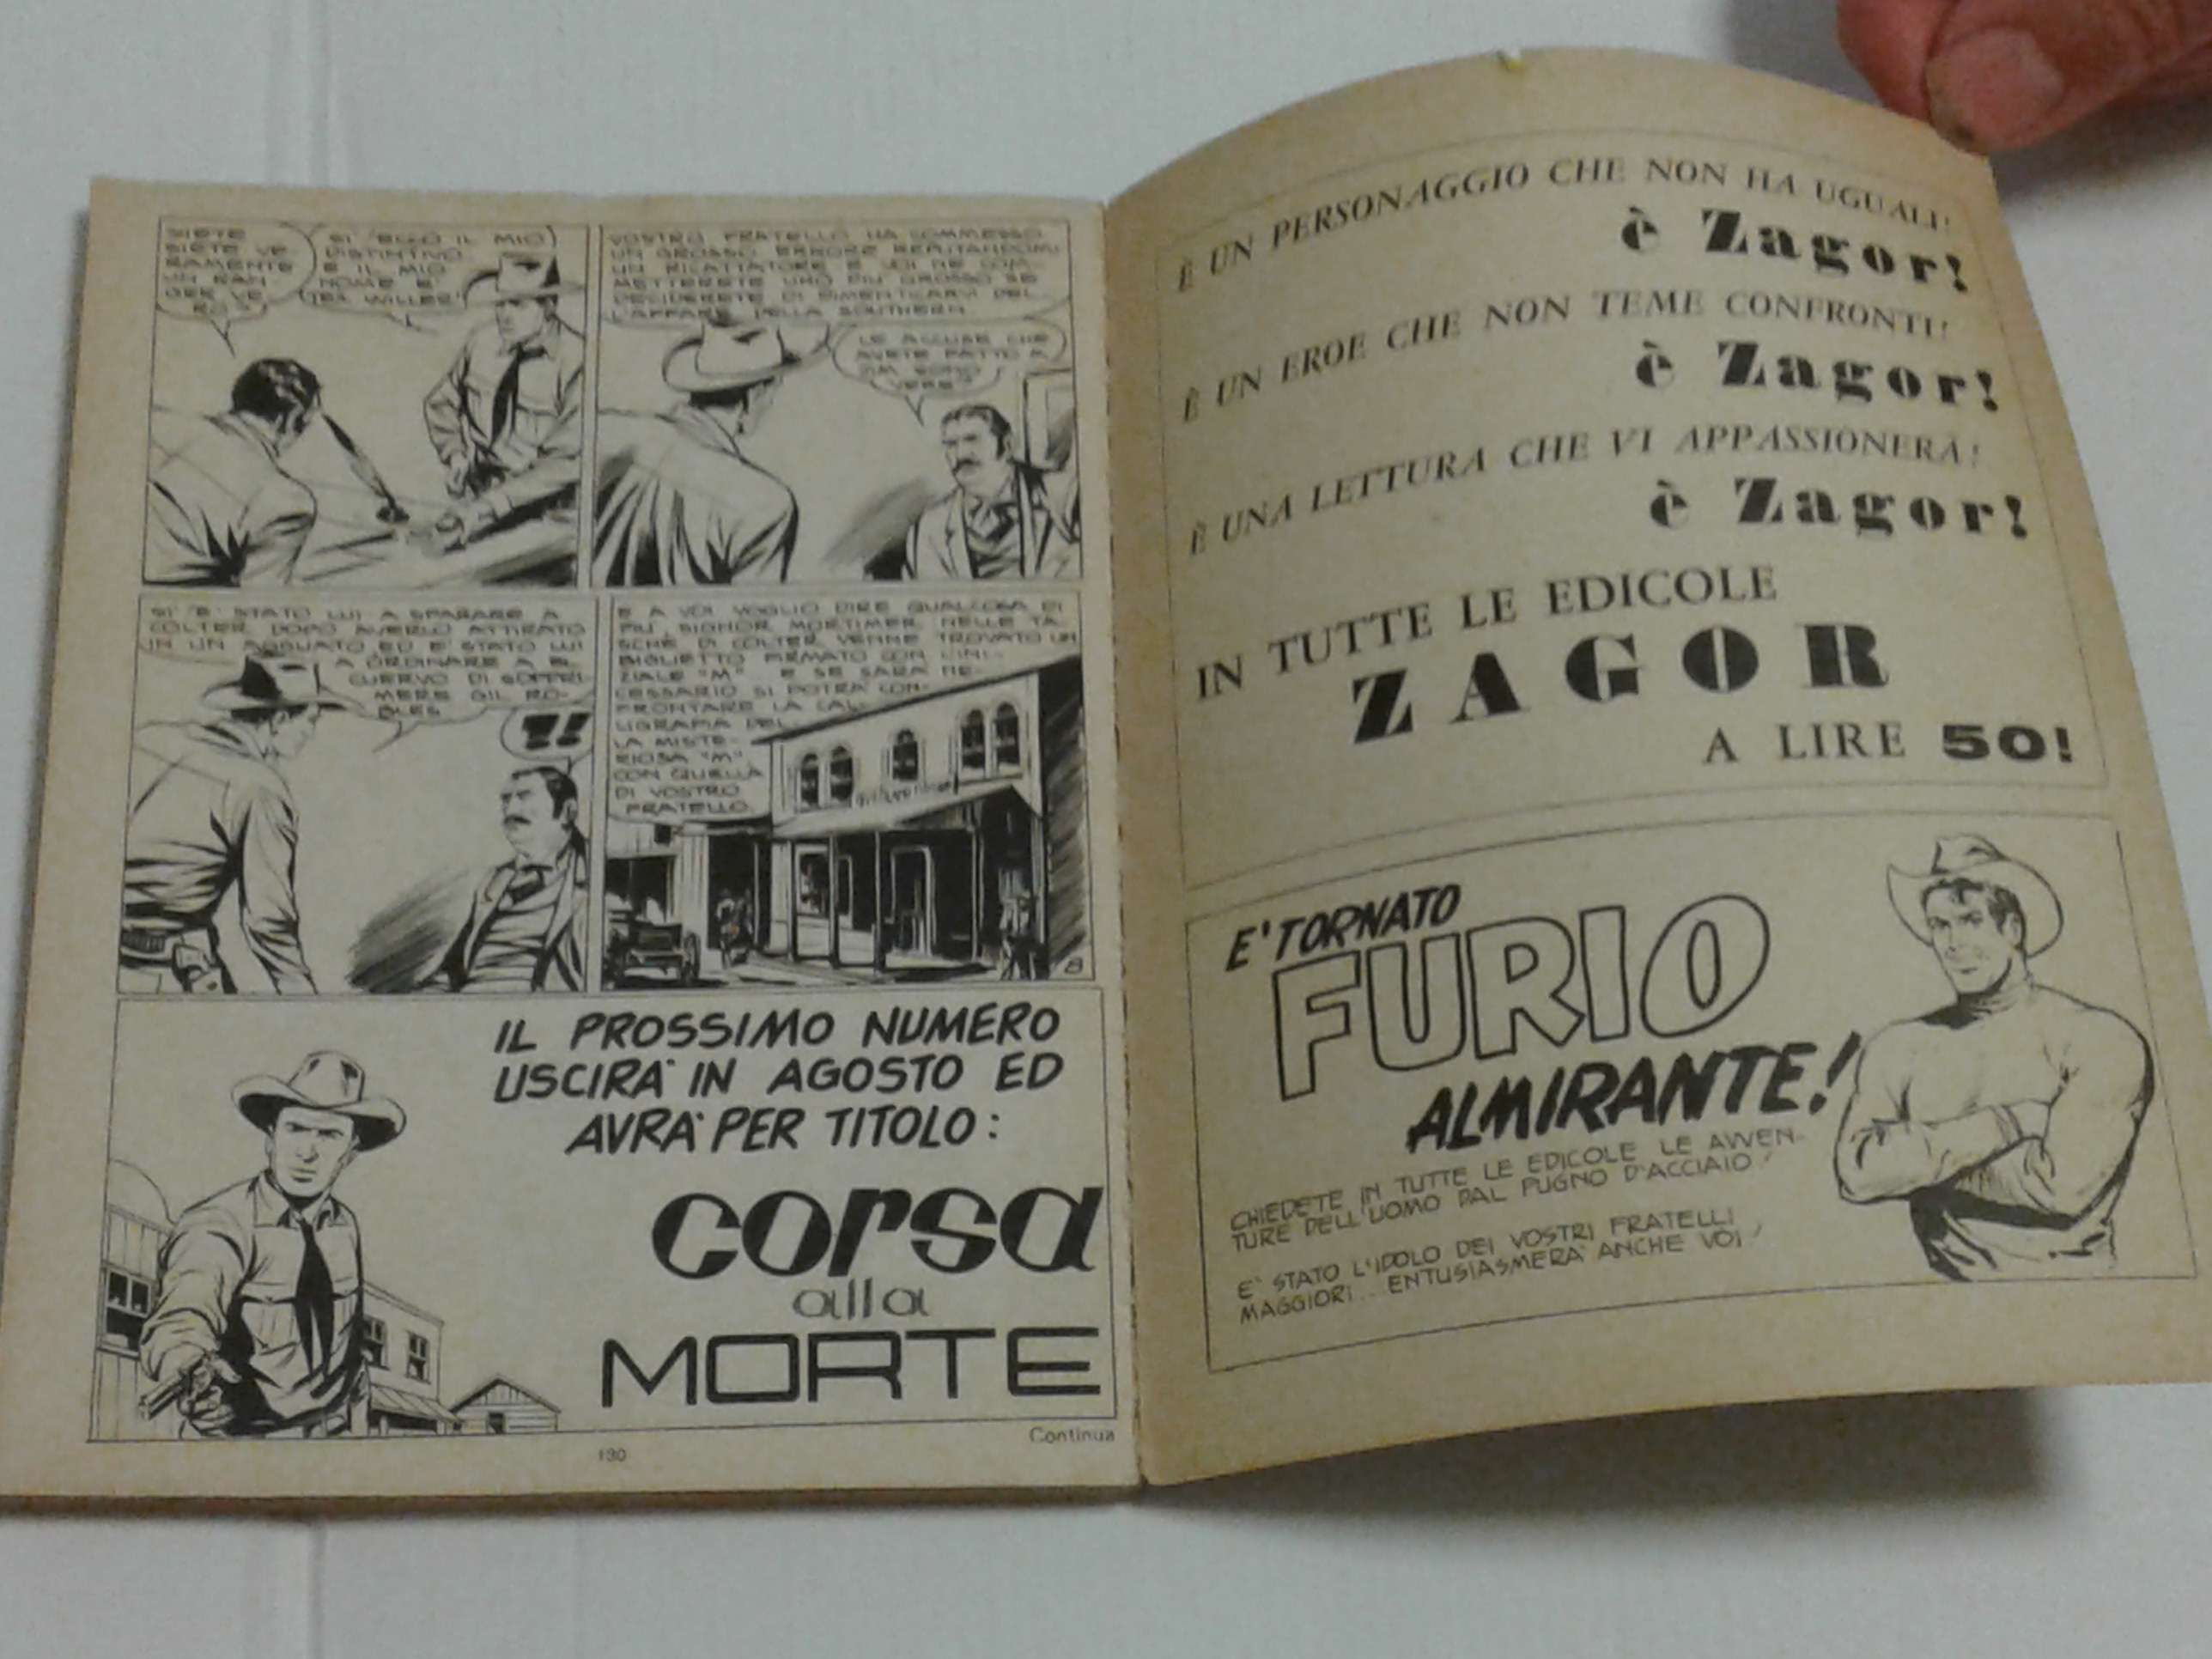 SIETE
SIETE VE
RAMENTE
UN RAN
GER VE
RO?
SI' ECCO IL MIO
DISTINTIVO
E IL MIO
NOME E'
TEX WILLER!
VOSTRO FRATELLO HA COMMESSO
UN GROSSO ERRORE
UN RICATTATORE E VOI NE COM
METTERETE UNO PIU' GROSSO SE
DECIDERETE DI DIMENTICARVI DEL
L'AFFARE DELLA SOUTHERN
LE ACCUSE CHE
AVETE FATTO A
JIM SONO
VERE?
SI' E' STATO LUI A SPARARE A
COLTER DOPO AVERLO ATTIRATO
IN UN AGGUATO ED E' STATO LUI
A ORDINARE A EL
CUERVO DI SOPPRI-
MERE GIL RO-
BLES
?!
E A VOI VOGLIO DIRE QUALCOSA DI
PIU', SIGNOR MORTIMER NELLE TA-
SCHE DI COLTER VENNE TROVATO UN
BIGLIETTO FIRMATO CON L'INI-
ZIALE "M" E SE SARA' NE-
CESSARIO SI POTRA' CON-
FRONTARE LA CAL-
LIGRAFIA DEL
LA MISTE-
RIOSA "M"
CON QUELLA
DI VOSTRO
FRATELLO.
8
IL PROSSIMO NUMERO
USCIRA' IN AGOSTO ED
AVRA' PER TITOLO:
corsa
alla
MORTE
Continua
130
È UN PERSONAGGIO CHE NON HA UGUALI!
è Zagor!
È UN EROE CHE NON TEME CONFRONTI!
è Zagor!
È UNA LETTURA CHE VI APPASSIONERÀ!
è Zagor!
IN TUTTE LE EDICOLE
ZAGOR
A LIRE 50!
E' TORNATO
FURIO
ALMIRANTE!
CHIEDETE IN TUTTE LE EDICOLE LE AVVEN-
TURE DELL'UOMO DAL PUGNO D'ACCIAIO!
E' STATO L'IDOLO DEI VOSTRI FRATELLI
MAGGIORI... ENTUSIASMERA' ANCHE VOI!